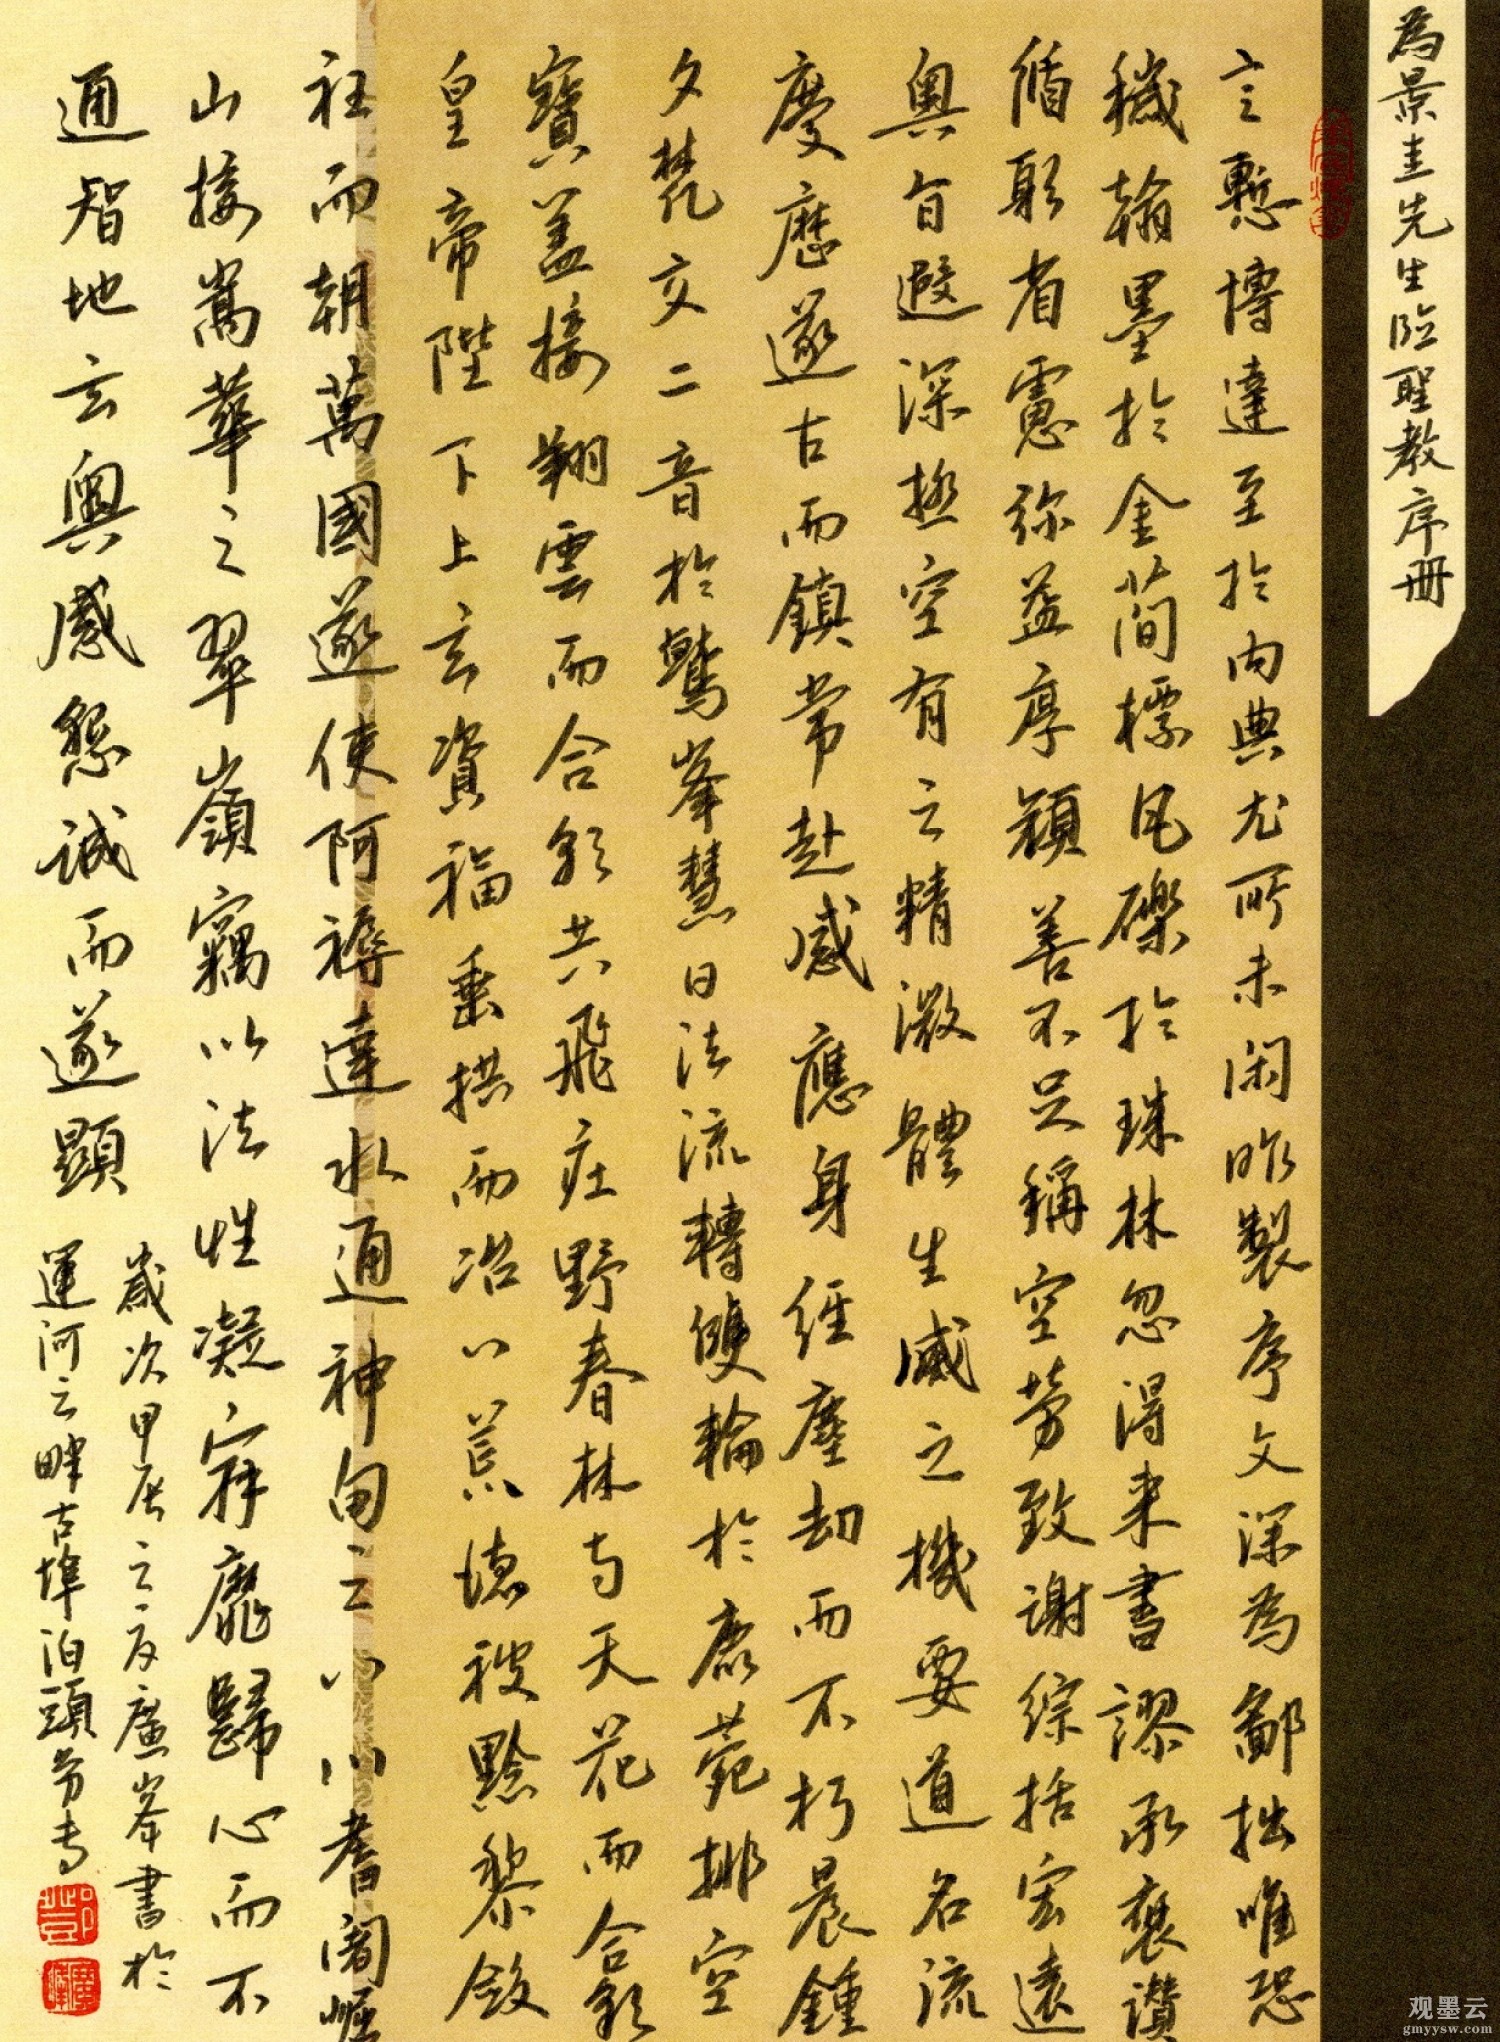 為景圭先生臨聖教序冊
言慙博達至於內典尤所未閑昨製序文深為鄙拙唯恐
穢翰墨於金簡標瓦礫於珠林忽得來書謬承褒讚
循躬省慮弥益厚顏善不足稱空勞致謝綜括宏遠
奧旨遐深極空有之精微體生滅之機要道名流
慶歷遂古而鎮常赴感應身經塵劫而不朽晨鍾
夕梵交二音於鷲峯慧日法流轉雙輪於鹿菀排空
寶盖接翔雲而合彩共飛庄野春林与天花而合彩
皇帝陛下上玄資福垂拱而治八荒德被黔黎斂
衽而朝萬國遂使阿褥達水通神甸之八川耆闍崛
山接嵩華之翠嶺竊以法性凝寂靡歸心而不
通智地玄奧感懇誠而遂顯
歲次甲辰之夏廉峯書於
運河之畔古埠泊頭
观墨云
gmyysw.com